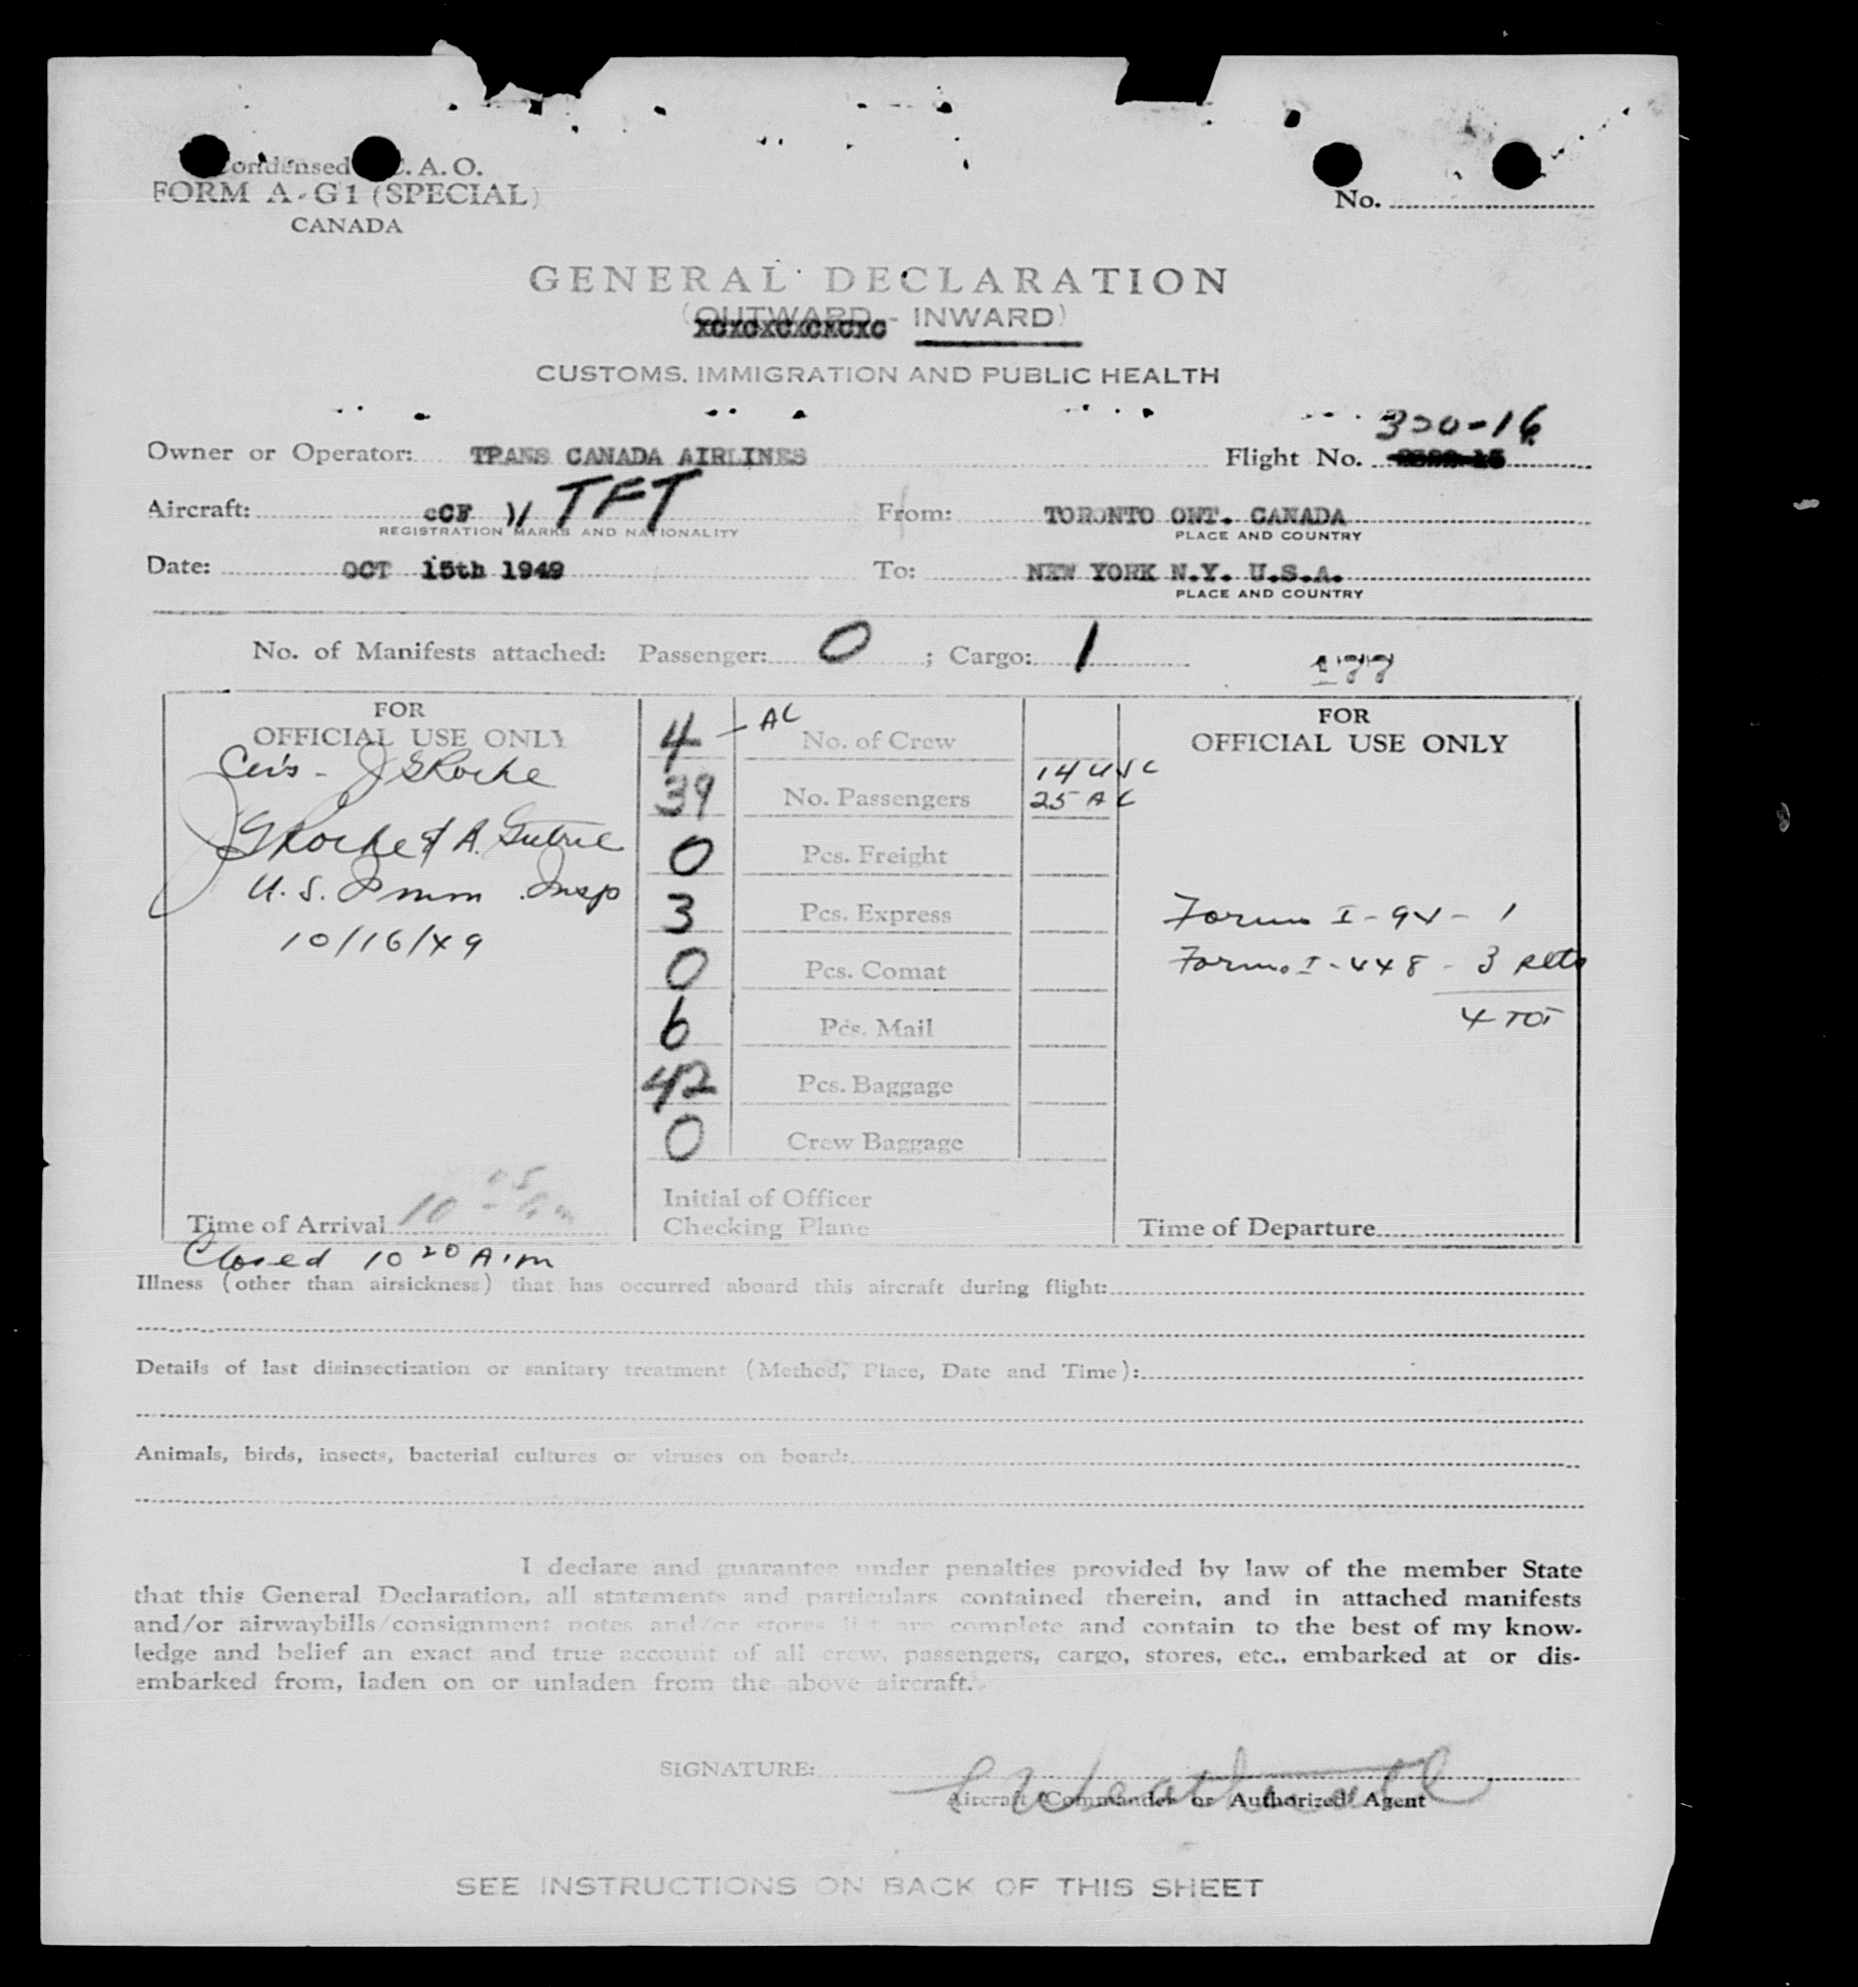 Condensed C. A. O.
FORM A-G1 (SPECIAL)
CANADA
No.
GENERAL DECLARATION
(OUTWARD - INWARD)
CUSTOMS, IMMIGRATION AND PUBLIC HEALTH
320-16
Owner or Operator: TRANS CANADA AIRLINES Flight No.
Aircraft: CF TFT From: TORONTO ONT. CANADA
REGISTRATION MARKS AND NATIONALITY PLACE AND COUNTRY
Date: OCT 15th 1949 To: NEW YORK N.Y. U.S.A.
PLACE AND COUNTRY
No. of Manifests attached: Passenger: 0 ; Cargo: 1
177
FOR
OFFICIAL USE ONLY
JGRoche
JGRoche & A. Gutrie
U. S. Imm. Insp
10/16/49
Time of Arrival 10 05 am
Closed 10 20 A.m
4 - AC No. of Crew
39 No. Passengers 14 USC
25 AC
0 Pcs. Freight
3 Pcs. Express
0 Pcs. Comat
6 Pcs. Mail
42 Pcs. Baggage
0 Crew Baggage
Initial of Officer
Checking Plane
FOR
OFFICIAL USE ONLY
Forms I-94 - 1
Forms I-448 - 3 sets
4 TOT
Time of Departure
Illness (other than airsickness) that has occurred aboard this aircraft during flight:
Details of last disinsectization or sanitary treatment (Method, Place, Date and Time):
Animals, birds, insects, bacterial cultures or viruses on board:
I declare and guarantee under penalties provided by law of the member State
that this General Declaration, all statements and particulars contained therein, and in attached manifests
and/or airwaybills/consignment notes and/or stores list are complete and contain to the best of my know-
ledge and belief an exact and true account of all crew, passengers, cargo, stores, etc., embarked at or dis-
embarked from, laden on or unladen from the above aircraft.
SIGNATURE:
Aircraft Commander or Authorized Agent
SEE INSTRUCTIONS ON BACK OF THIS SHEET